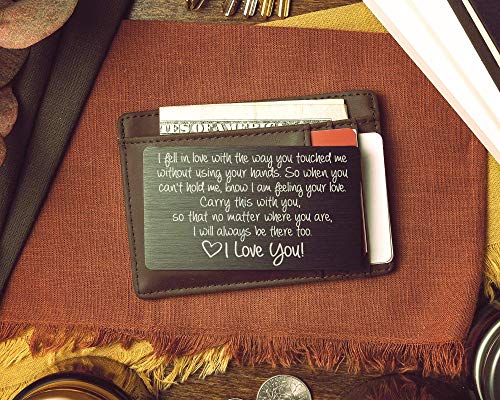 TES OF AMERICA
I fell in love with the way you touched me
without using your hands. So when you
can't hold me, know I am feeling your love.
Carry this with you,
so that no matter where you are,
I will always be there too.
♡I Love You!